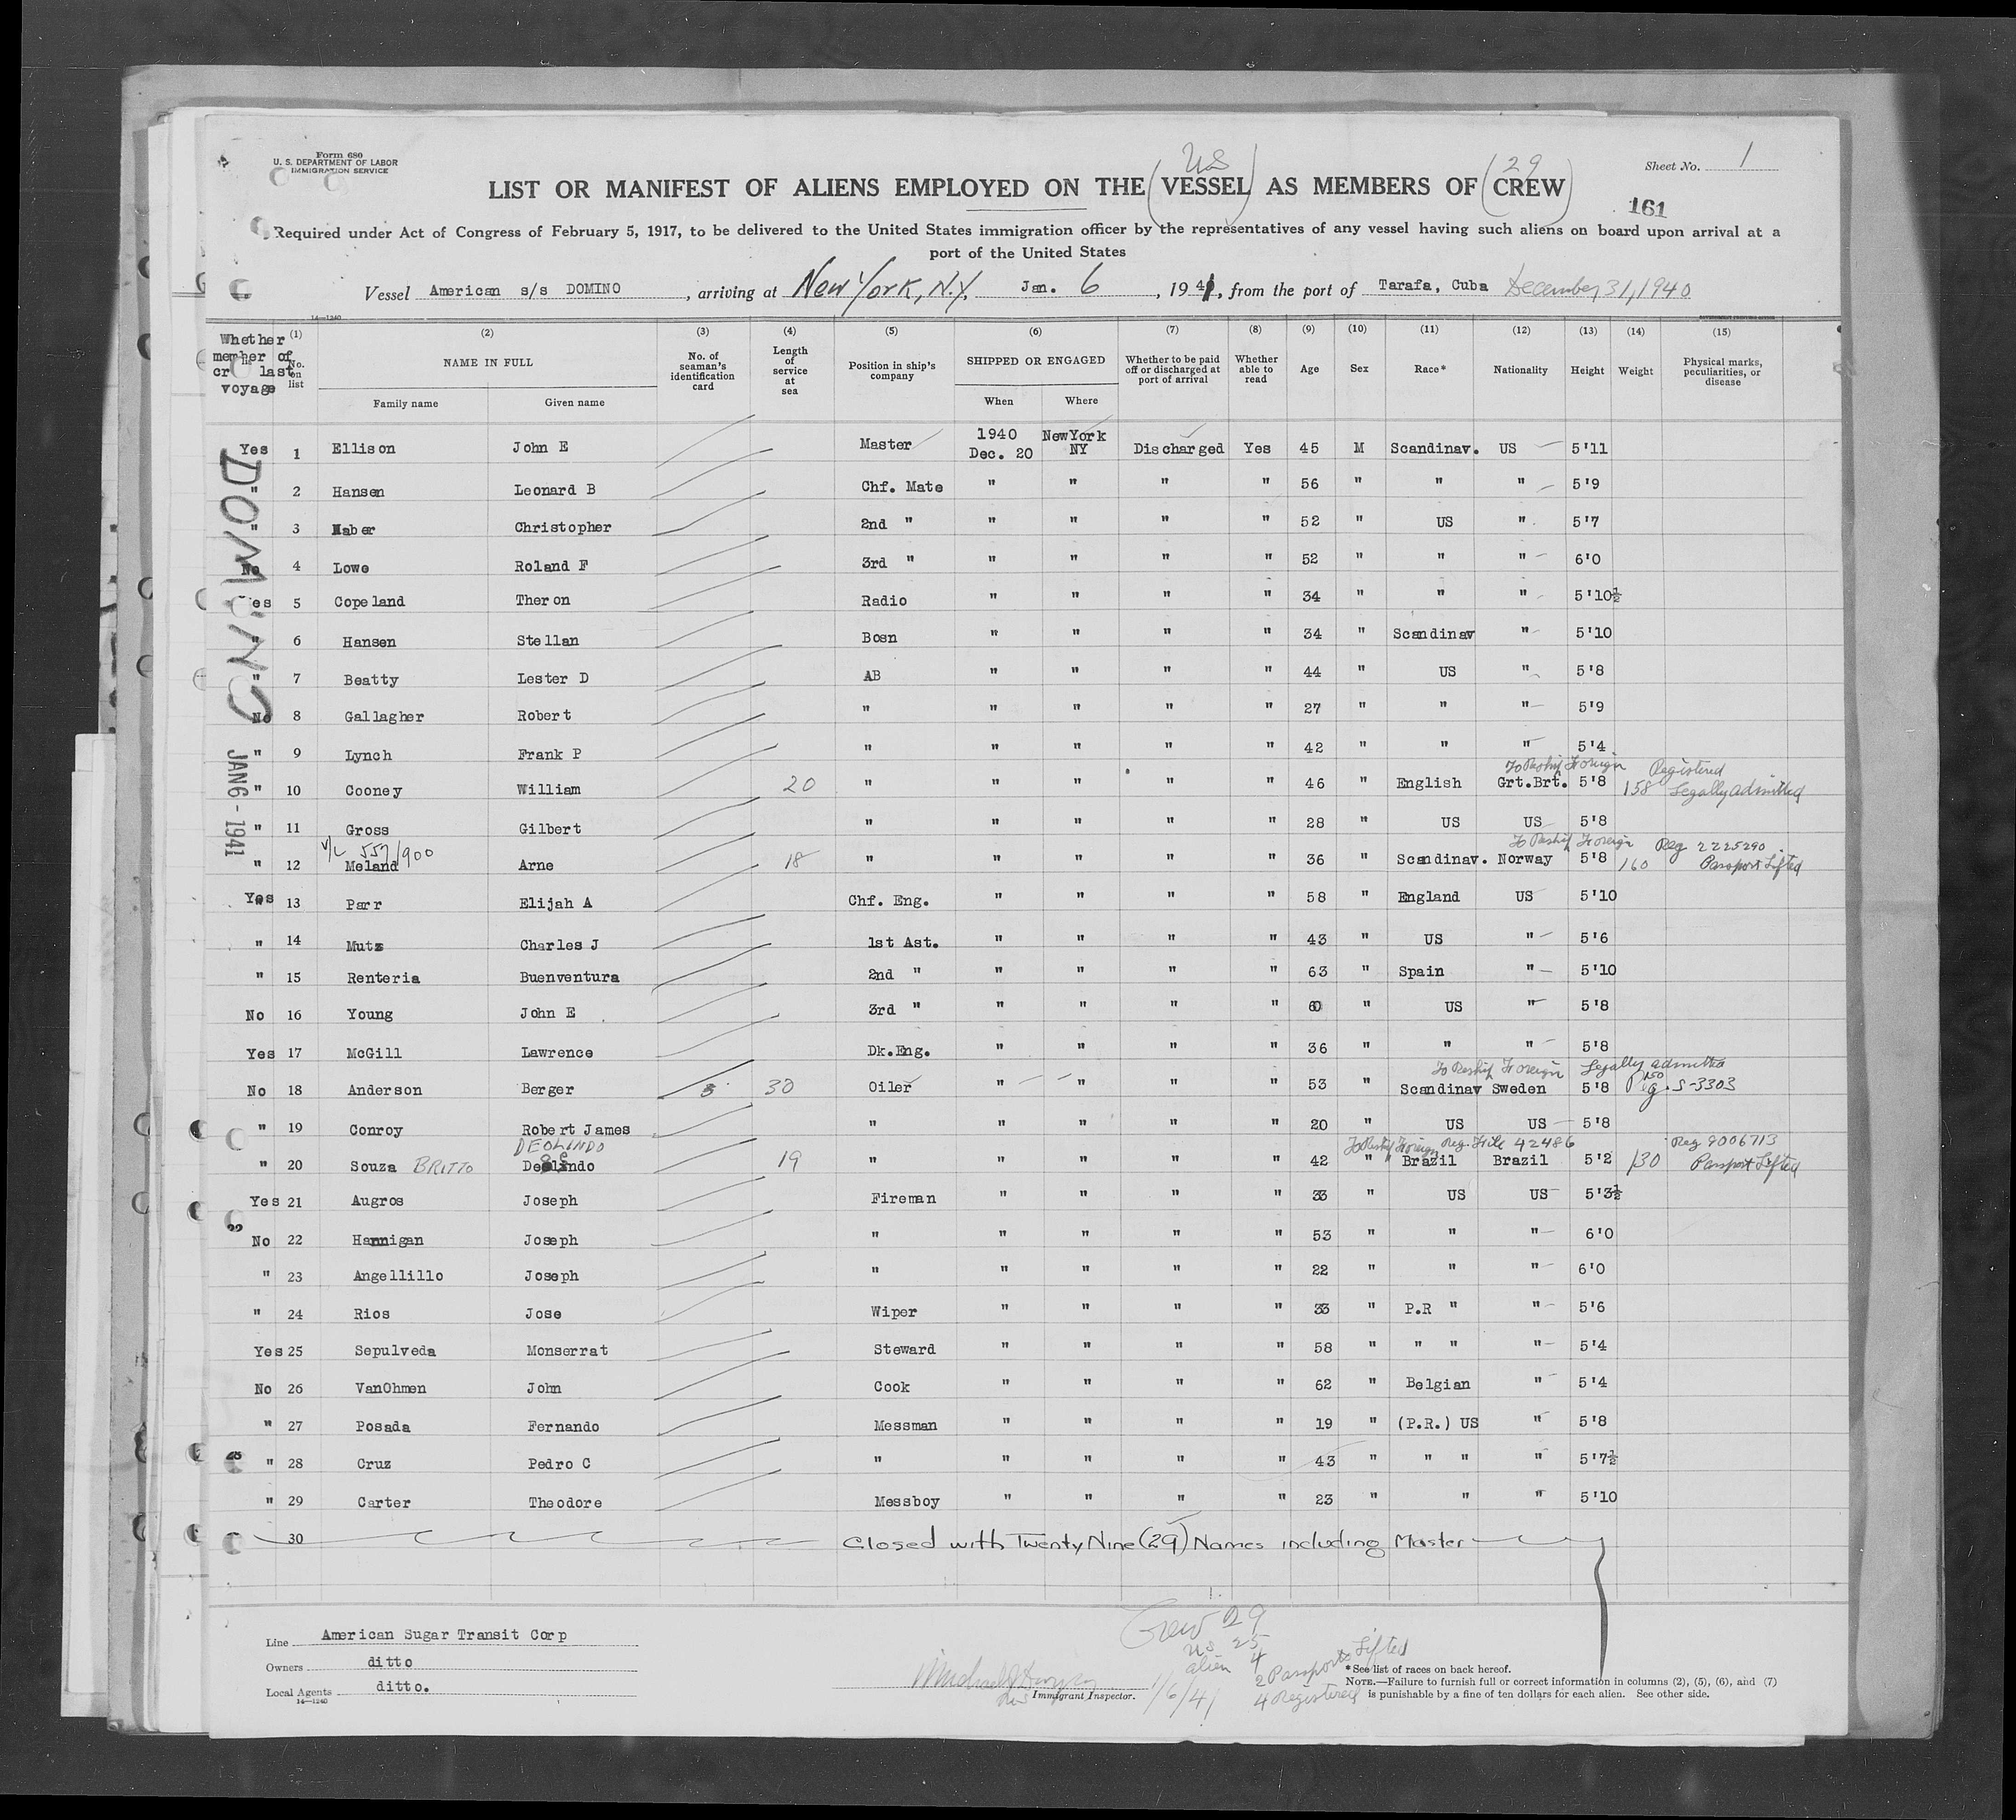 Form 680
U. S. DEPARTMENT OF LABOR
IMMIGRATION SERVICE
US
29
Sheet No. 1
LIST OR MANIFEST OF ALIENS EMPLOYED ON THE (VESSEL) AS MEMBERS OF (CREW)
161
Required under Act of Congress of February 5, 1917, to be delivered to the United States immigration officer by the representatives of any vessel having such aliens on board upon arrival at a
port of the United States
Vessel American s/s DOMINO, arriving at New York, N.Y. Jan. 6, 1941, from the port of Tarafa, Cuba December 31, 1940
14—1240
Whether member of last voyage
(1) No. on list
(2) NAME IN FULL
Family name Given name
(3) No. of seaman's identification card
(4) Length of service at sea
(5) Position in ship's company
(6) SHIPPED OR ENGAGED
When Where
(7) Whether to be paid off or discharged at port of arrival
(8) Whether able to read
(9) Age
(10) Sex
(11) Race*
(12) Nationality
(13) Height
(14) Weight
(15) Physical marks, peculiarities, or disease
DOMINO
JAN 6 - 1941
Yes 1 Ellison John E Master 1940 Dec. 20 New York NY Discharged Yes 45 M Scandinav. US 5'11
" 2 Hansen Leonard B Chf. Mate " " " " 56 " " " 5'9
" 3 Haber Christopher 2nd " " " " " 52 " US " 5'7
No 4 Lowe Roland F 3rd " " " " " 52 " " " 6'0
Yes 5 Copeland Theron Radio " " " " 34 " " " 5'10½
" 6 Hansen Stellan Bosn " " " " 34 " Scandinav " 5'10
" 7 Beatty Lester D AB " " " " 44 " US " 5'8
No 8 Gallagher Robert " " " " " 27 " " " 5'9
" 9 Lynch Frank P " " " " " 42 " " " 5'4
To Reship Foreign Registered
" 10 Cooney William 20 " " " " " 46 " English Grt.Brt. 5'8 158 Legally admitted
" 11 Gross Gilbert " " " " " 28 " US US 5'8
V/L 557/900 To Reship Foreign Reg 2225290
" 12 Meland Arne 18 " " " " " 36 " Scandinav. Norway 5'8 160 Passport Lifted
Yes 13 Parr Elijah A Chf. Eng. " " " " 58 " England US 5'10
" 14 Mutz Charles J 1st Ast. " " " " 43 " US " 5'6
" 15 Renteria Buenventura 2nd " " " " " 63 " Spain " 5'10
No 16 Young John E 3rd " " " " " 60 " US " 5'8
Yes 17 McGill Lawrence Dk.Eng. " " " " 36 " " " 5'8
To Reship Foreign Legally admitted
No 18 Anderson Berger 30 Oiler " " " " 53 " Scandinav Sweden 5'8 150 S-3303
" 19 Conroy Robert James " " " " " 20 " US US 5'8
DEOLINDO To Reship Foreign Reg. File 42486 Reg 9006713
" 20 Souza BRITTO Deolindo 19 " " " " " 42 " Brazil Brazil 5'2 130 Passport Lifted
Yes 21 Augros Joseph Fireman " " " " 33 " US US 5'3½
No 22 Hannigan Joseph " " " " " 53 " " " 6'0
" 23 Angellillo Joseph " " " " " 22 " " " 6'0
" 24 Rios Jose Wiper " " " " 33 " P.R " " 5'6
Yes 25 Sepulveda Monserrat Steward " " " " 58 " " " " 5'4
No 26 VanOhmen John Cook " " " " 62 " Belgian " 5'4
" 27 Posada Fernando Messman " " " " 19 " (P.R.) US " 5'8
" 28 Cruz Pedro C " " " " " 43 " " " " 5'7½
" 29 Carter Theodore Messboy " " " " 23 " " " 5'10
30 Closed with Twenty Nine (29) Names including Master
Line American Sugar Transit Corp
Owners ditto
Local Agents ditto.
14—1240
Immigrant Inspector.
1/6/41
Crew 29
US 25
alien 4
2 Passports Lifted
4 Registered
*See list of races on back hereof.
NOTE.—Failure to furnish full or correct information in columns (2), (5), (6), and (7)
is punishable by a fine of ten dollars for each alien. See other side.